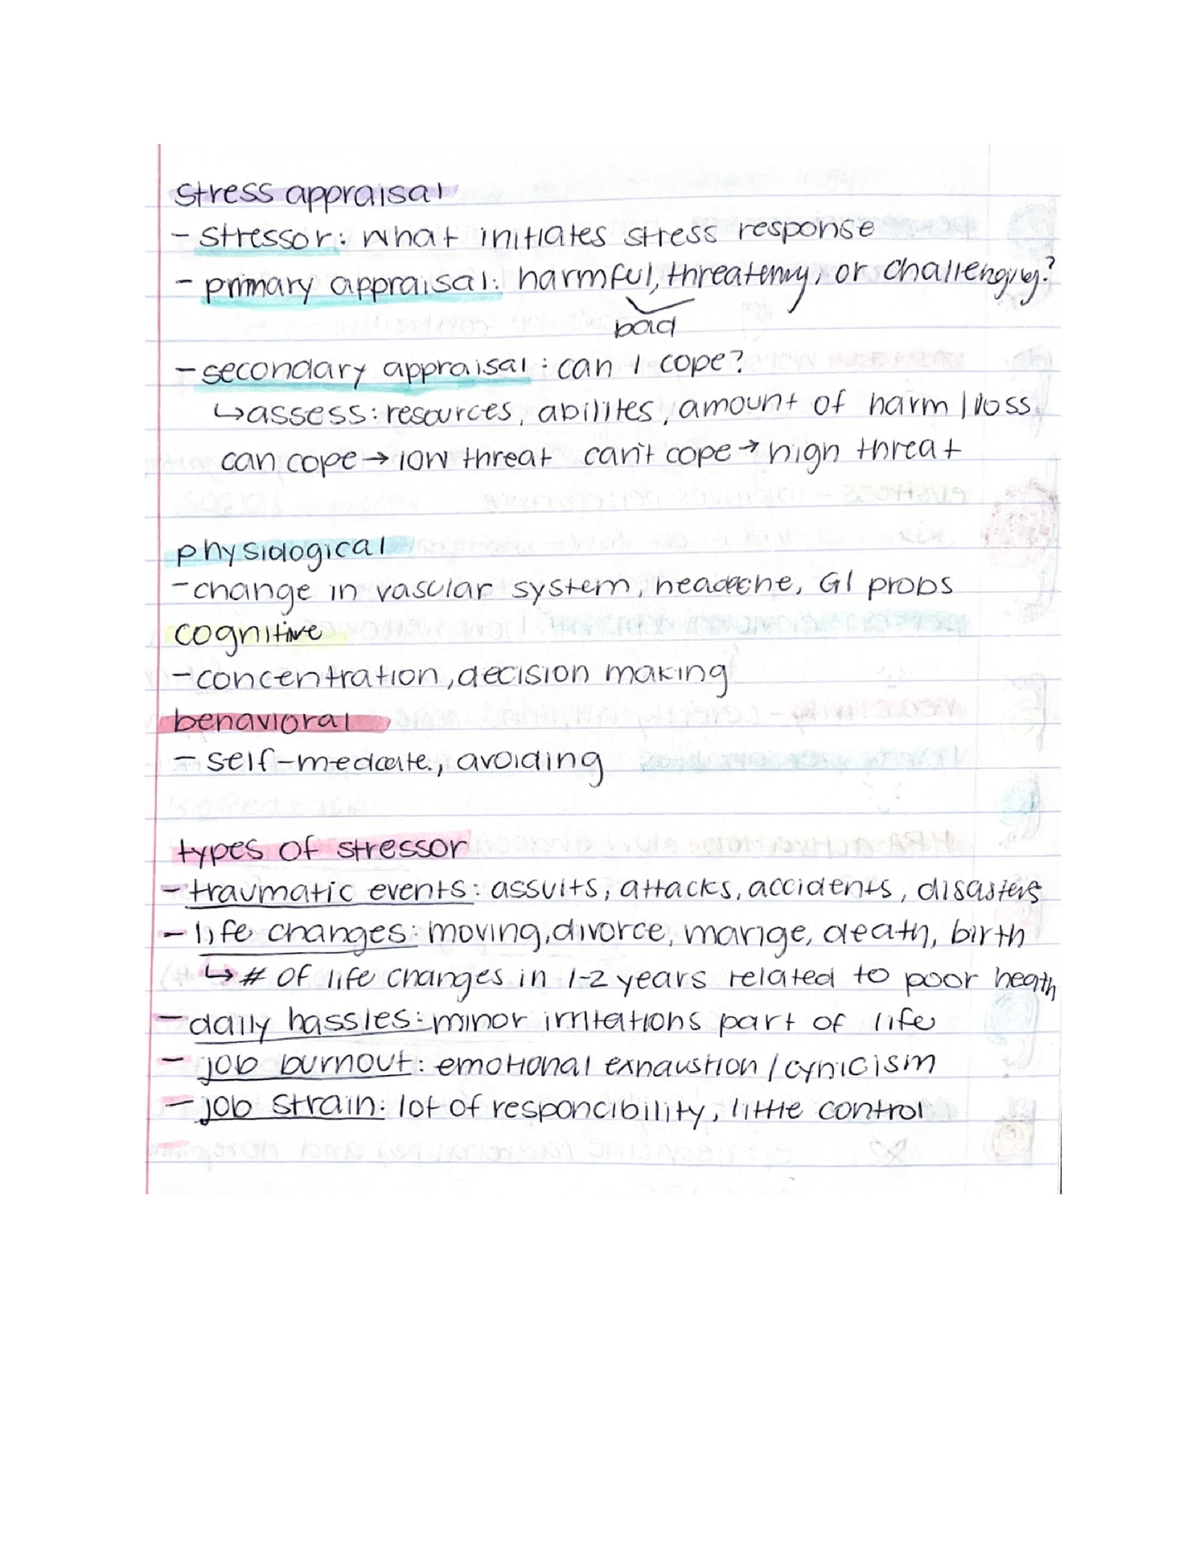 stress appraisal
- stressor: what initiates stress response
- primary appraisal: harmful, threatening, or challenging?
bad
- secondary appraisal: can I cope?
↳ assess: resources, abilites, amount of harm / loss
can cope → low threat can't cope → high threat
physiological
- change in vascular system, headache, GI probs
cognitive
- concentration, decision making
behavioral
- self-medicate, avoiding
types of stressor
- traumatic events: assults, attacks, accidents, disasters
- life changes: moving, divorce, marige, death, birth
↳ # of life changes in 1-2 years related to poor heath
- daily hassles: minor irritations part of life
- job burnout: emotional exhaustion / cynicism
- job strain: lot of responcibility, little control